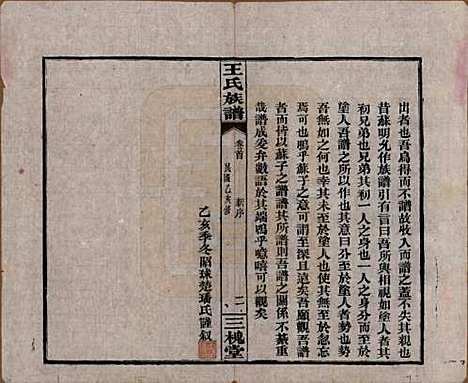 出者也吾爲得而不譜故收入而譜之蓋不失其
昔蘇明允作族譜引有言曰吾所與相視如塗人者其
初兄弟也兄弟其初一人之身也一人之身分而至於
塗人吾譜之所以作也其意曰分至於塗人者勢也勢
吾無如之何也幸其未至於塗人也使其無至於忽忘
焉可也嗚乎蘇子之意可謂至深且遠矣吾願觀吾譜
者而皆以蘇子之譜譜其所譜則吾譜之關係不綦重
哉譜成爰弁數語於其端嗚乎噫嘻可以觀矣
乙亥季冬昭球楚璠氏謹叙
王氏族譜
卷首
新序
民國乙亥修
二
三槐堂